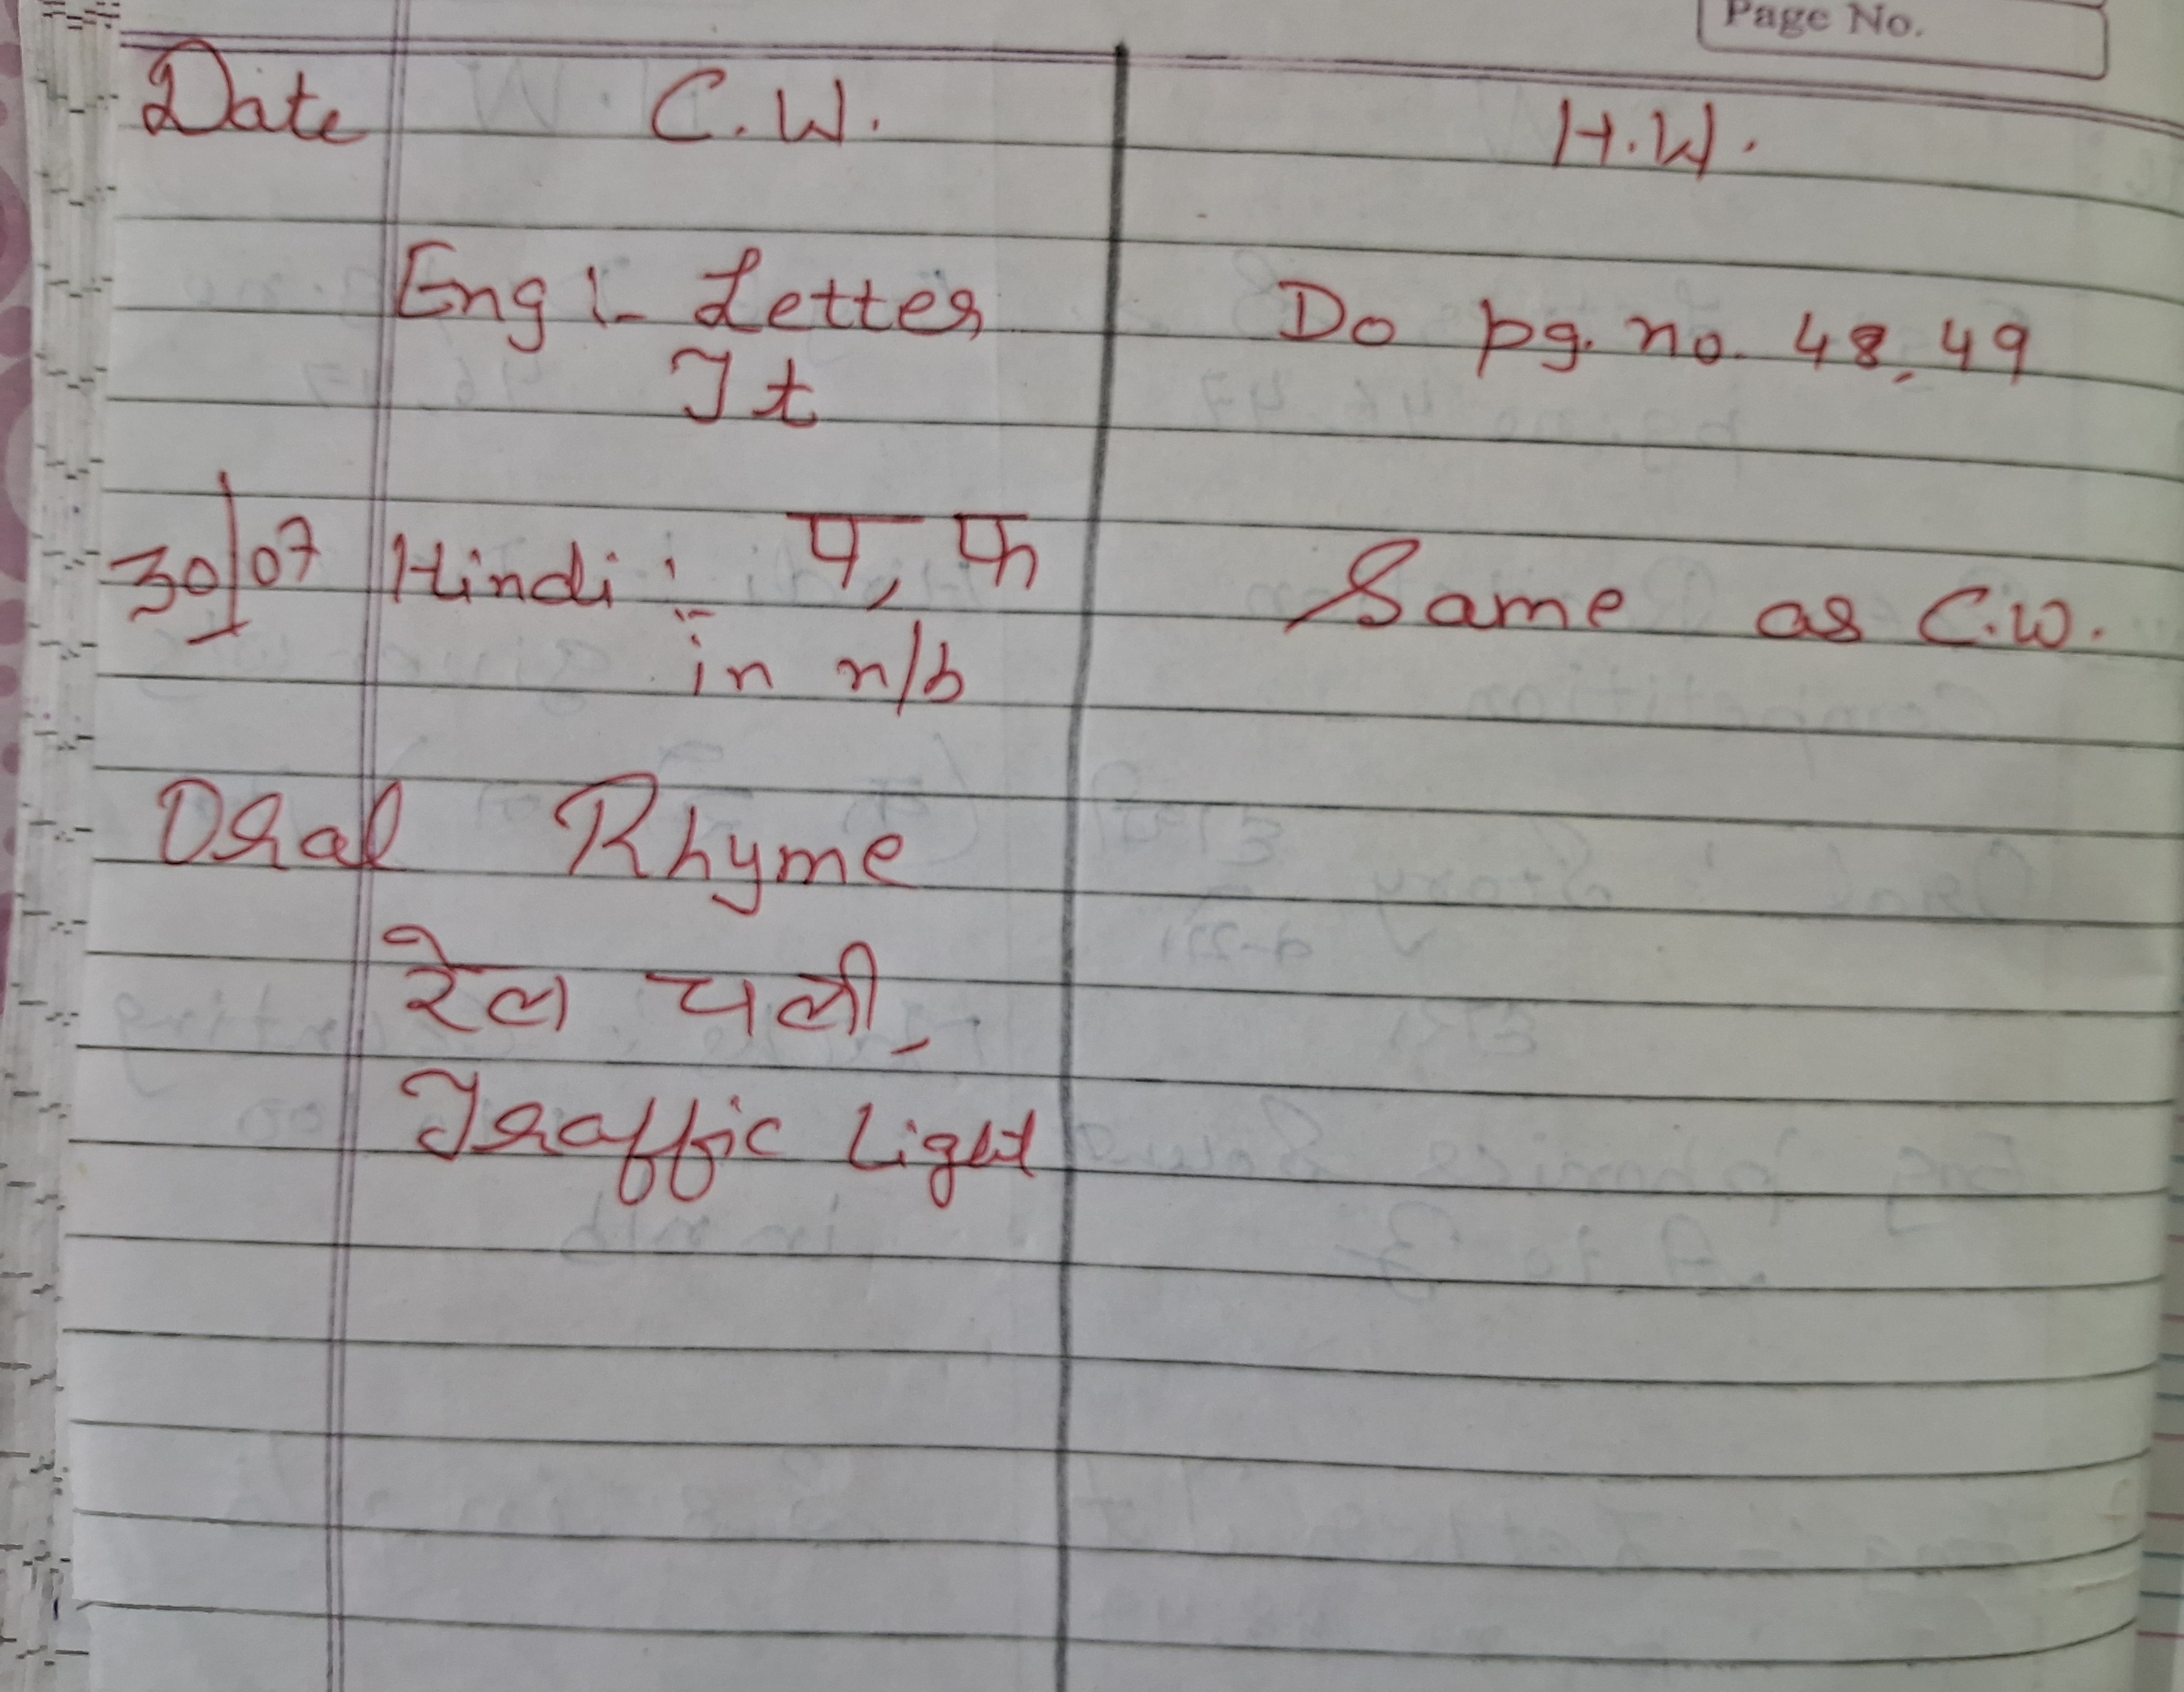 Page No.
Date C.W. H.W.
Eng :- Letter Do pg. no. 48, 49
T t
30/07 Hindi :- प, फ Same as C.W.
in n/b
Oral Rhyme
रेल चली,
Traffic Light